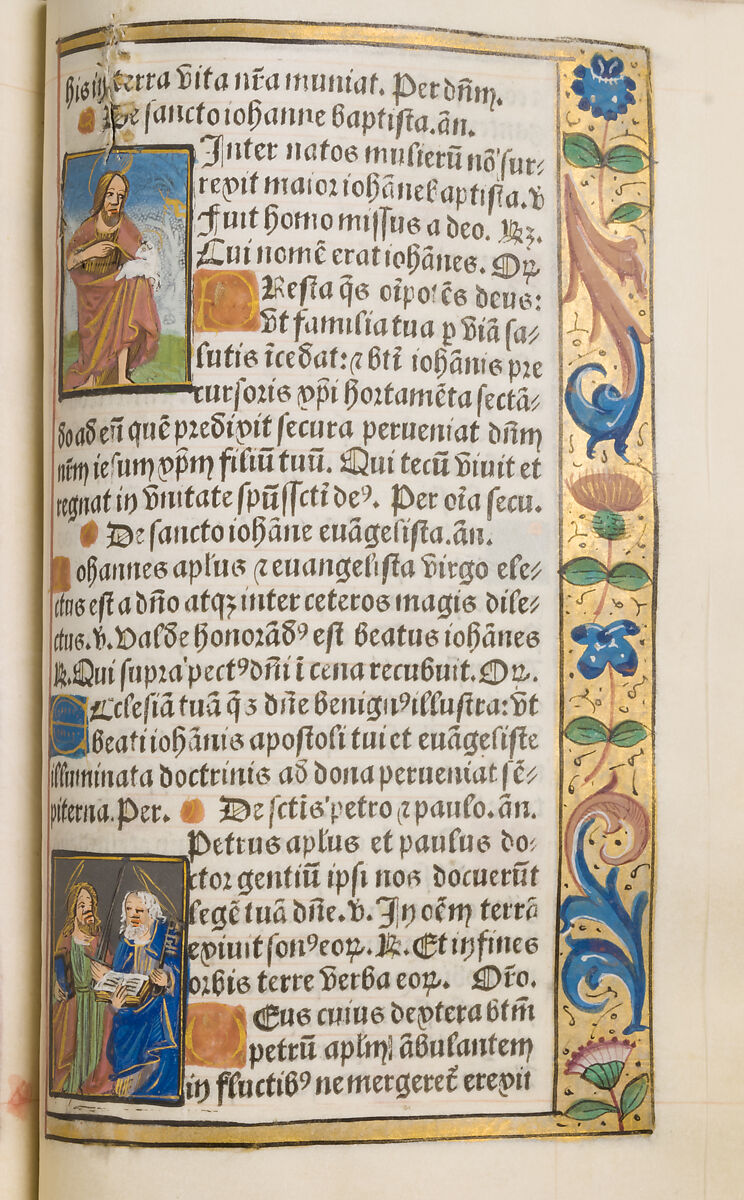 his in terra vita nr̄a muniat. Per dn̄m.
De sancto iohanne baptista. an̄.
Inter natos mulierū nō sur⸗
rexit maior iohāne baptista. v
Fuit homo missus a deo. Rꝫ.
Cui nomē erat iohānes. Oꝝ
PResta q̄s oīpotēs deus:
vt familia tua ꝑ viā sa⸗
lutis īcedat: ⁊ btī iohānis pre
cursoris xp̄i hortamēta sectā⸗
do ad eū quē predixit secura perueniat dn̄m
nr̄m iesum xp̄m filiū tuū. Qui tecū viuit et
regnat in vnitate spūssctī deꝰ. Per oīa secu.
De sancto iohāne euāgelista. an̄.
Iohannes apl̄us ⁊ euangelista virgo ele⸗
ctus est a dn̄o atqꝫ inter ceteros magis dile⸗
ctus. v. Valde honorādꝰ est beatus iohānes
R. Qui supra pectꝰ dn̄i ī cena recubuit. Oꝝ.
ECclesiā tuā q̄ꝫ dn̄e benignꝰ illustra: vt
beati iohānis apostoli tui et euāgeliste
illuminata doctrinis ad dona perueniat sē⸗
piterna. Per. De sctīs petro ⁊ paulo. an̄.
Petrus apl̄us et paulus do⸗
ctor gentiū ipsi nos docuerūt
legē tuā dn̄e. v. In oēm terrā
exiuit sonꝰ eoꝝ. R. Et in fines
orbis terre verba eoꝝ. Or̄o.
DEus cuius dextera btm̄
petrū aplm̄ ābulantem
in fluctibꝰ ne mergeret̄ erexit